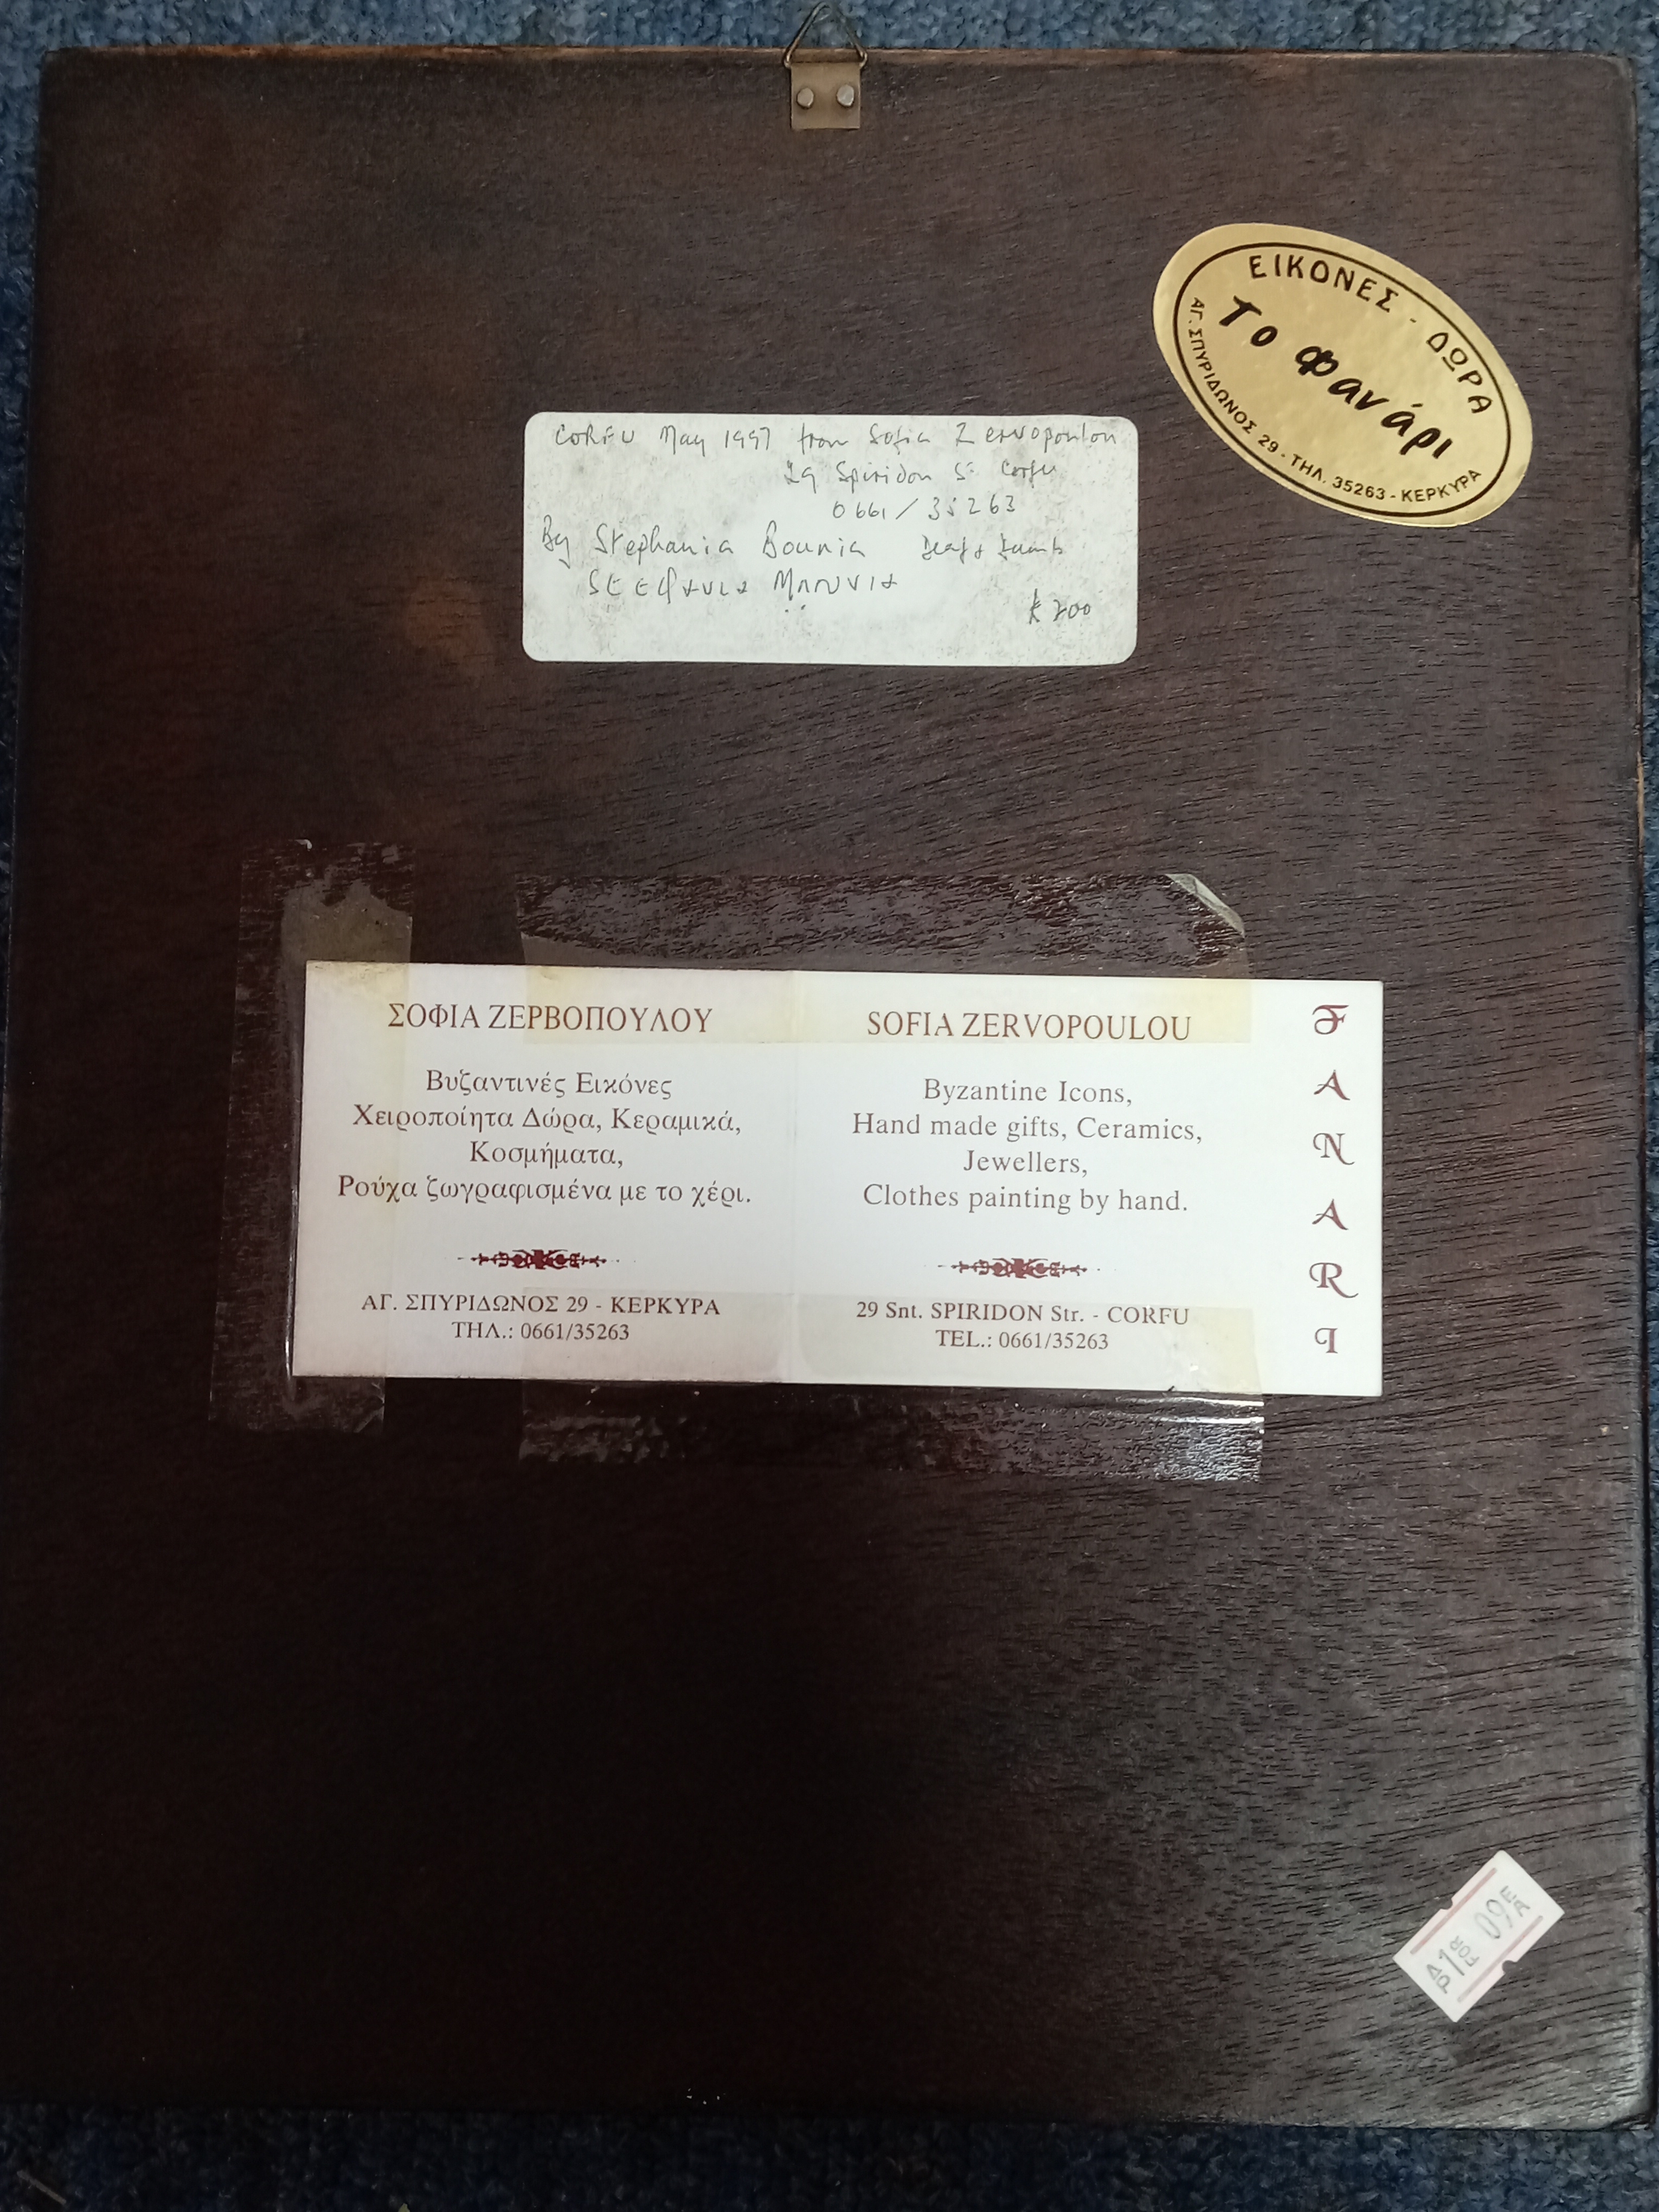 ΕΙΚΟΝΕΣ - ΔΩΡΑ
Το φανάρι
ΑΓ. ΣΠΥΡΙΔΩΝΟΣ 29 - ΤΗΛ. 35263 - ΚΕΡΚΥΡΑ
CORFU May 1997 from Sofia Zervopoulou
29 Spiridon St Corfu
0661/35263
By Stephania Bounia Deaf & Dumb
200
ΣΟΦΙΑ ΖΕΡΒΟΠΟΥΛΟΥ
Βυζαντινές Εικόνες
Χειροποίητα Δώρα, Κεραμικά,
Κοσμήματα,
Ρούχα ζωγραφισμένα με το χέρι.
ΑΓ. ΣΠΥΡΙΔΩΝΟΣ 29 - ΚΕΡΚΥΡΑ
ΤΗΛ.: 0661/35263
SOFIA ZERVOPOULOU
Byzantine Icons,
Hand made gifts, Ceramics,
Jewellers,
Clothes painting by hand.
29 Snt. SPIRIDON Str. - CORFU
TEL.: 0661/35263
FANARI